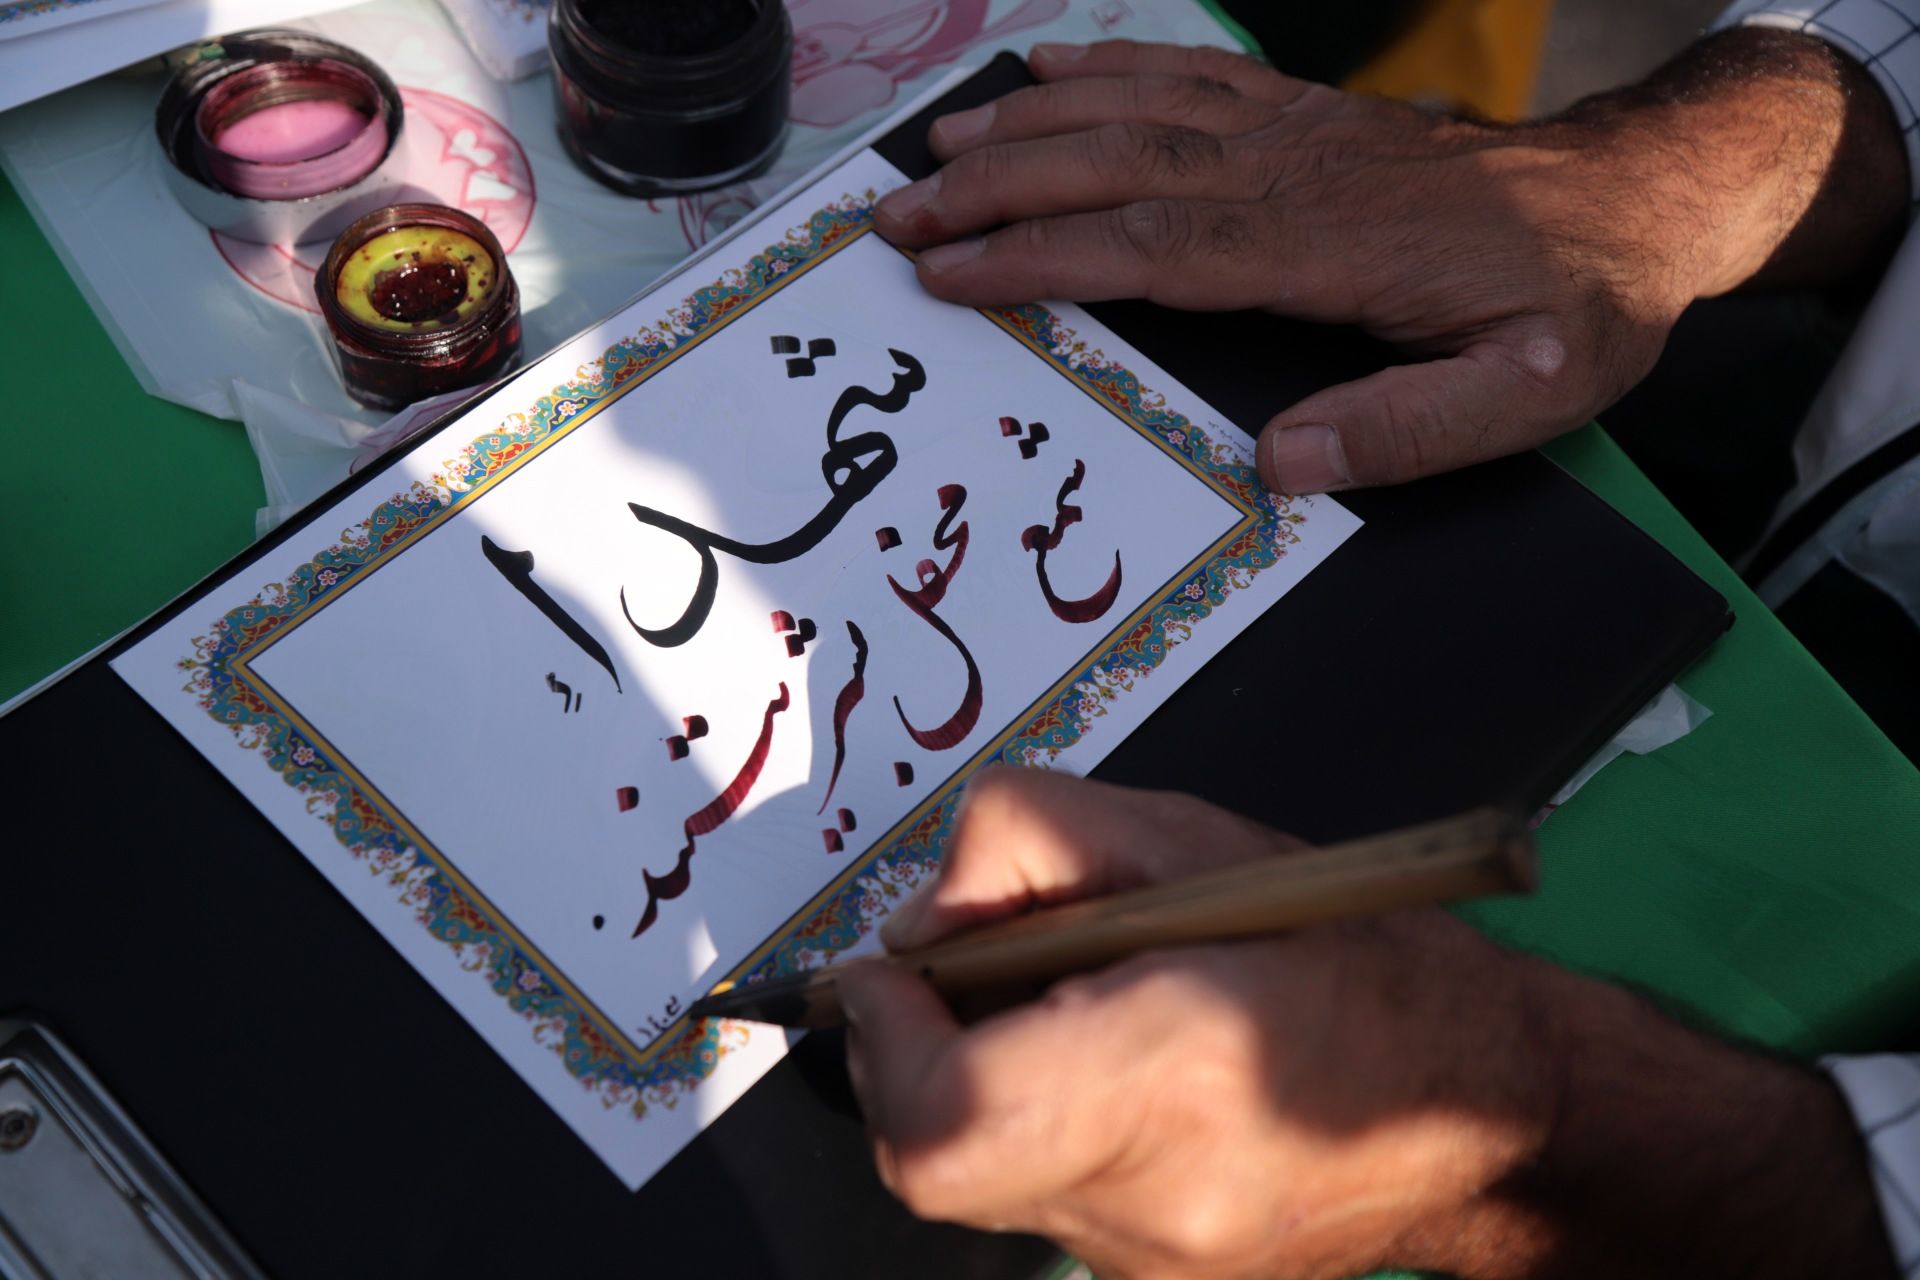 شهدا
شمع محفل بشریتند.